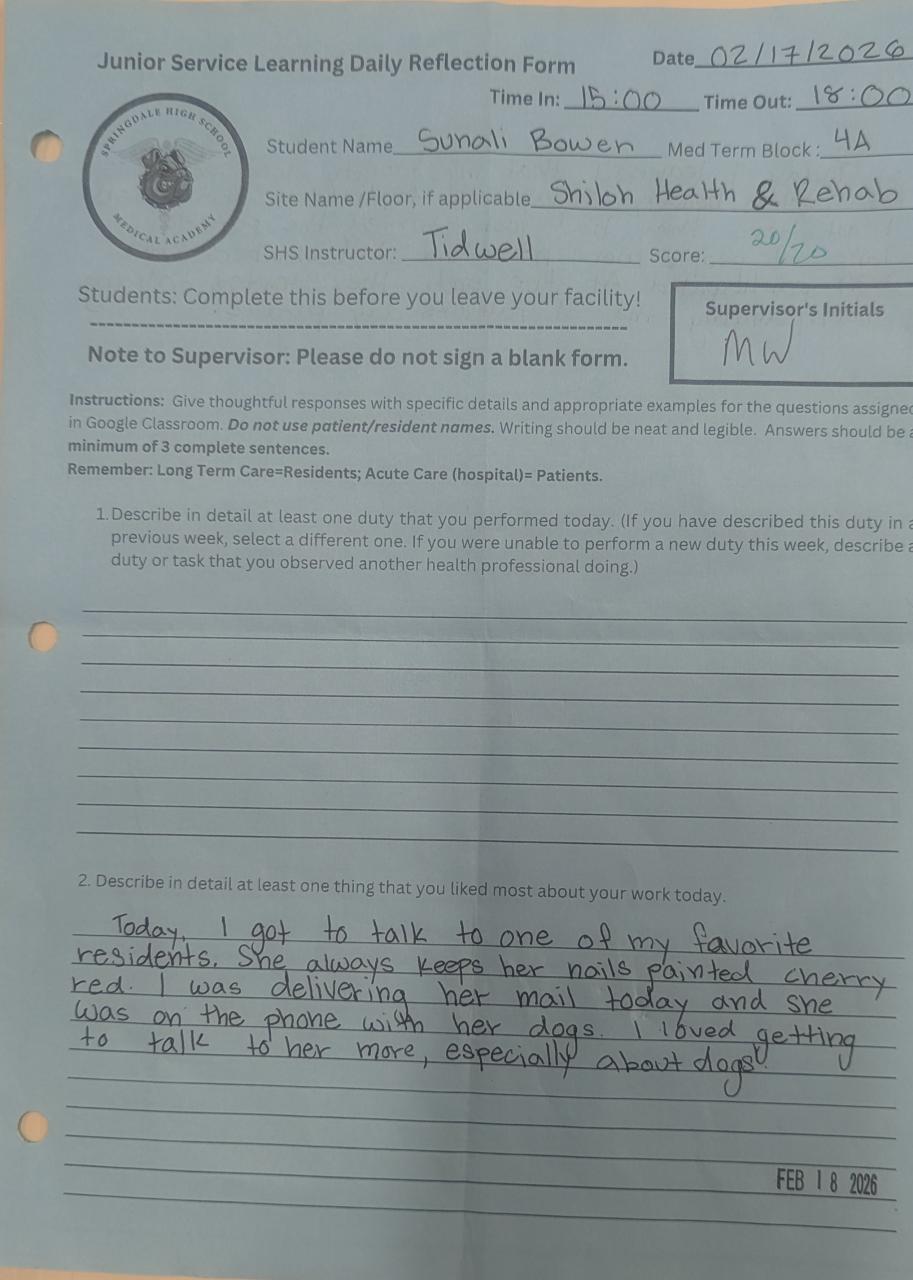 Junior Service Learning Daily Reflection Form
Date 02/17/2026
Time In: 15:00 Time Out: 18:00
SPRINGDALE HIGH SCHOOL
MEDICAL ACADEMY
Student Name Sunali Bowen Med Term Block: 4A
Site Name /Floor, if applicable Shiloh Health & Rehab
SHS Instructor: Tidwell Score: 20/20
Students: Complete this before you leave your facility!
Supervisor's Initials
MW
Note to Supervisor: Please do not sign a blank form.
Instructions: Give thoughtful responses with specific details and appropriate examples for the questions assigned
in Google Classroom. Do not use patient/resident names. Writing should be neat and legible. Answers should be a
minimum of 3 complete sentences.
Remember: Long Term Care=Residents; Acute Care (hospital)= Patients.
1. Describe in detail at least one duty that you performed today. (If you have described this duty in a
previous week, select a different one. If you were unable to perform a new duty this week, describe a
duty or task that you observed another health professional doing.)
2. Describe in detail at least one thing that you liked most about your work today.
Today, I got to talk to one of my favorite
residents. She always keeps her nails painted cherry
red. I was delivering her mail today and she
was on the phone with her dogs. I loved getting
to talk to her more, especially about dogs!
FEB 18 2026